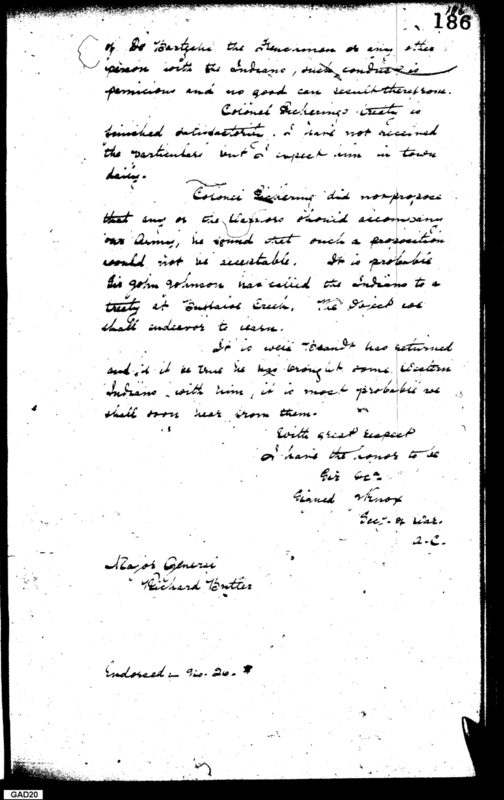 186
186
of De Bartzche the Frenchman or any other
person with the Indians, such conduct is
pernicious and no good can result therefrom.
Colonel Pickerings treaty is
finished satisfactorily. I have not received
the particulars but I expect him in town
daily.
Colonel Pickering did not propose
that any of the Warriors should accompany
our Army, he found that such a proposition
would not be acceptable. It is probable
Sir John Johnson has called the Indians to a
treaty at Buffaloe Creek. The object we
shall endeavor to learn.
It is well Brandt has returned
and if it be true he has brought some Western
Indians with him, it is most probable we
shall soon hear from them.
With great respect
I have the honor to be
Sir &ca
Signed HKnox
Secy. of War.
Major General
Richard Butler
Endorsed - No. 20.
GAD20